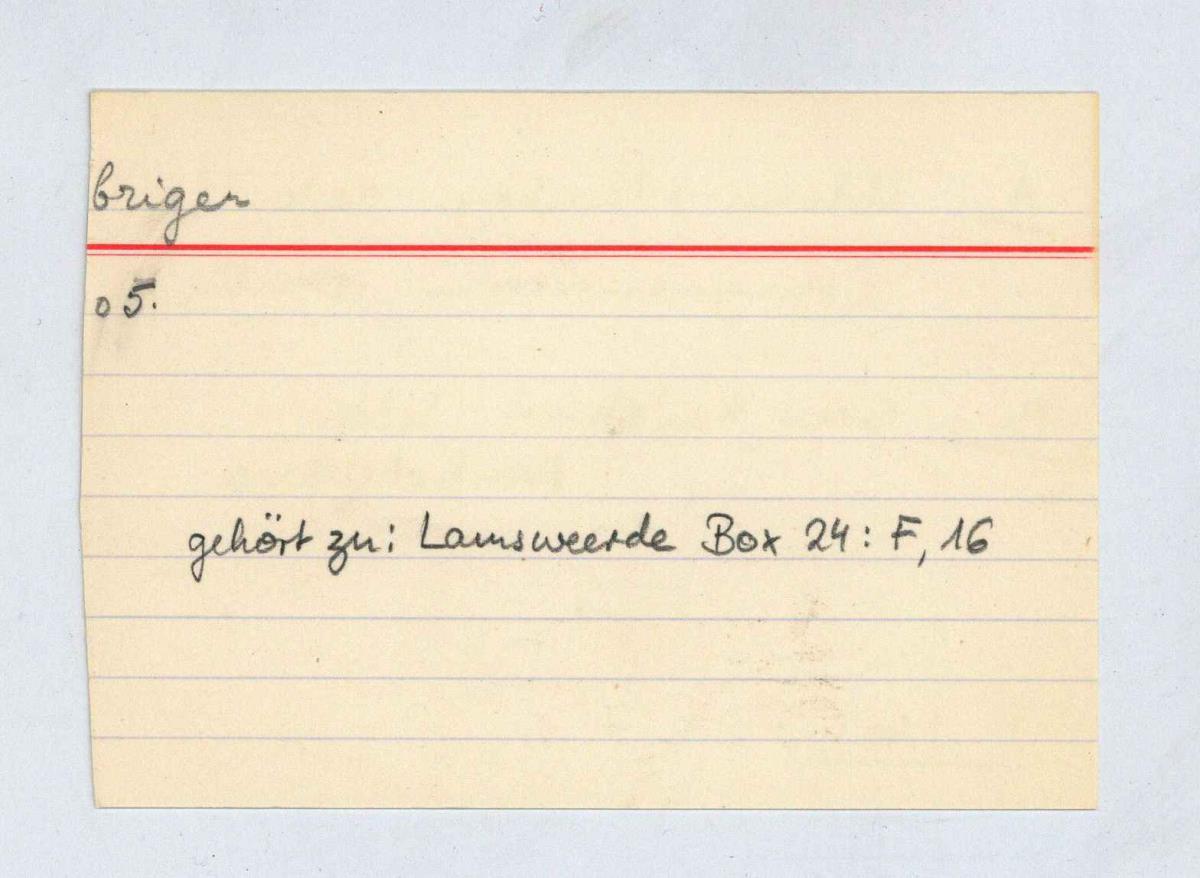 briger
05.
gehört zu: Lamsweerde Box 24: F, 16